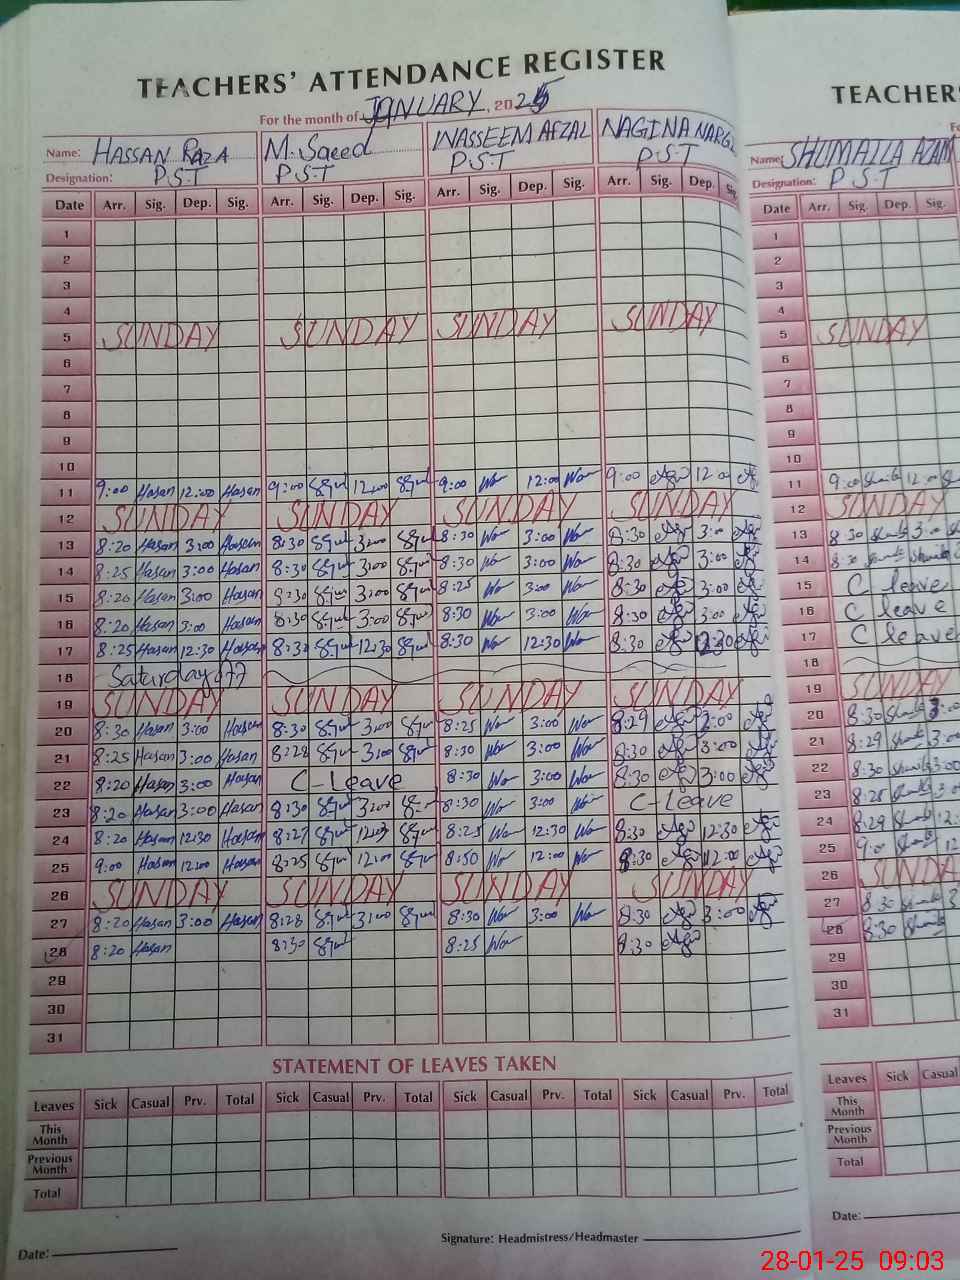 TEACHERS' ATTENDANCE REGISTER
For the month of JANUARY, 2025
Name: HASSAN RAZA M. Saeed WASSEEM AFZAL NAGINA NARG
Designation: P.S.T P.S.T P.S.T P.S.T
Date Arr. Sig. Dep. Sig. Arr. Sig. Dep. Sig. Arr. Sig. Dep. Sig. Arr. Sig. Dep. Sig.
1
2
3
4
5 SUNDAY SUNDAY SUNDAY SUNDAY
6
7
8
9
10
11 9:00 Hasan 12:00 Hasan 9:00 12:00 9:00 12:00 9:00 12:00
12 SUNDAY SUNDAY SUNDAY SUNDAY
13 8:20 Hasan 3:00 Hassan 8:30 3:00 8:30 3:00 8:30 3:00
14 8:25 Hasan 3:00 Hasan 8:30 3:00 8:30 3:00 8:30 3:00
15 8:20 Hasan 3:00 Hasan 8:30 3:00 8:25 3:00 8:30 3:00
16 8:20 Hasan 3:00 Hasan 8:30 3:00 8:30 3:00 8:30 3:00
17 8:25 Hasan 12:30 Hassan 8:30 12:30 8:30 12:30 8:30 12:30
18 Saturday off
19 SUNDAY SUNDAY SUNDAY SUNDAY
20 8:30 Hasan 3:00 Hasan 8:30 3:00 8:25 3:00 8:29 3:00
21 8:25 Hasan 3:00 Hasan 8:28 3:00 8:30 3:00 8:30 3:00
22 8:20 Hasan 3:00 Hasan C-Leave 8:30 3:00 8:30 3:00
23 8:20 Hasan 3:00 Hasan 8:30 3:00 8:30 3:00 C-Leave
24 8:20 Hasan 12:30 Hasan 8:27 8:25 12:30 8:30 12:30
25 9:00 Hasan 12:00 Hasan 8:25 12:00 8:50 12:00 8:30 12:00
26 SUNDAY SUNDAY SUNDAY SUNDAY
27 8:20 Hasan 3:00 Hasan 8:28 3:00 8:30 3:00 8:30 3:00
28 8:20 Hasan 8:30 8:25 8:30
29
30
31
STATEMENT OF LEAVES TAKEN
Leaves Sick Casual Prv. Total Sick Casual Prv. Total Sick Casual Prv. Total Sick Casual Prv. Total
This
Month
Previous
Month
Total
Date:
Signature: Headmistress/Headmaster
TEACHERS
Name: SHUMAILA AZAM
Designation: P.S.T
Date Arr. Sig. Dep. Sig.
1
2
3
4
5 SUNDAY
6
7
8
9
10
11 9:00 12:00
12 SUNDAY
13 8:30 3:00
14 8:30
15 C leave
16 C leave
17 C leave
18
19 SUNDAY
20 8:30 3:00
21 8:29 3:00
22 8:30 3:00
23 8:28
24 8:29
25 9:00
26 SUNDA
27 8:30
28 8:30
29
30
31
Leaves Sick Casual
This
Month
Previous
Month
Total
Date:
28-01-25 09:03